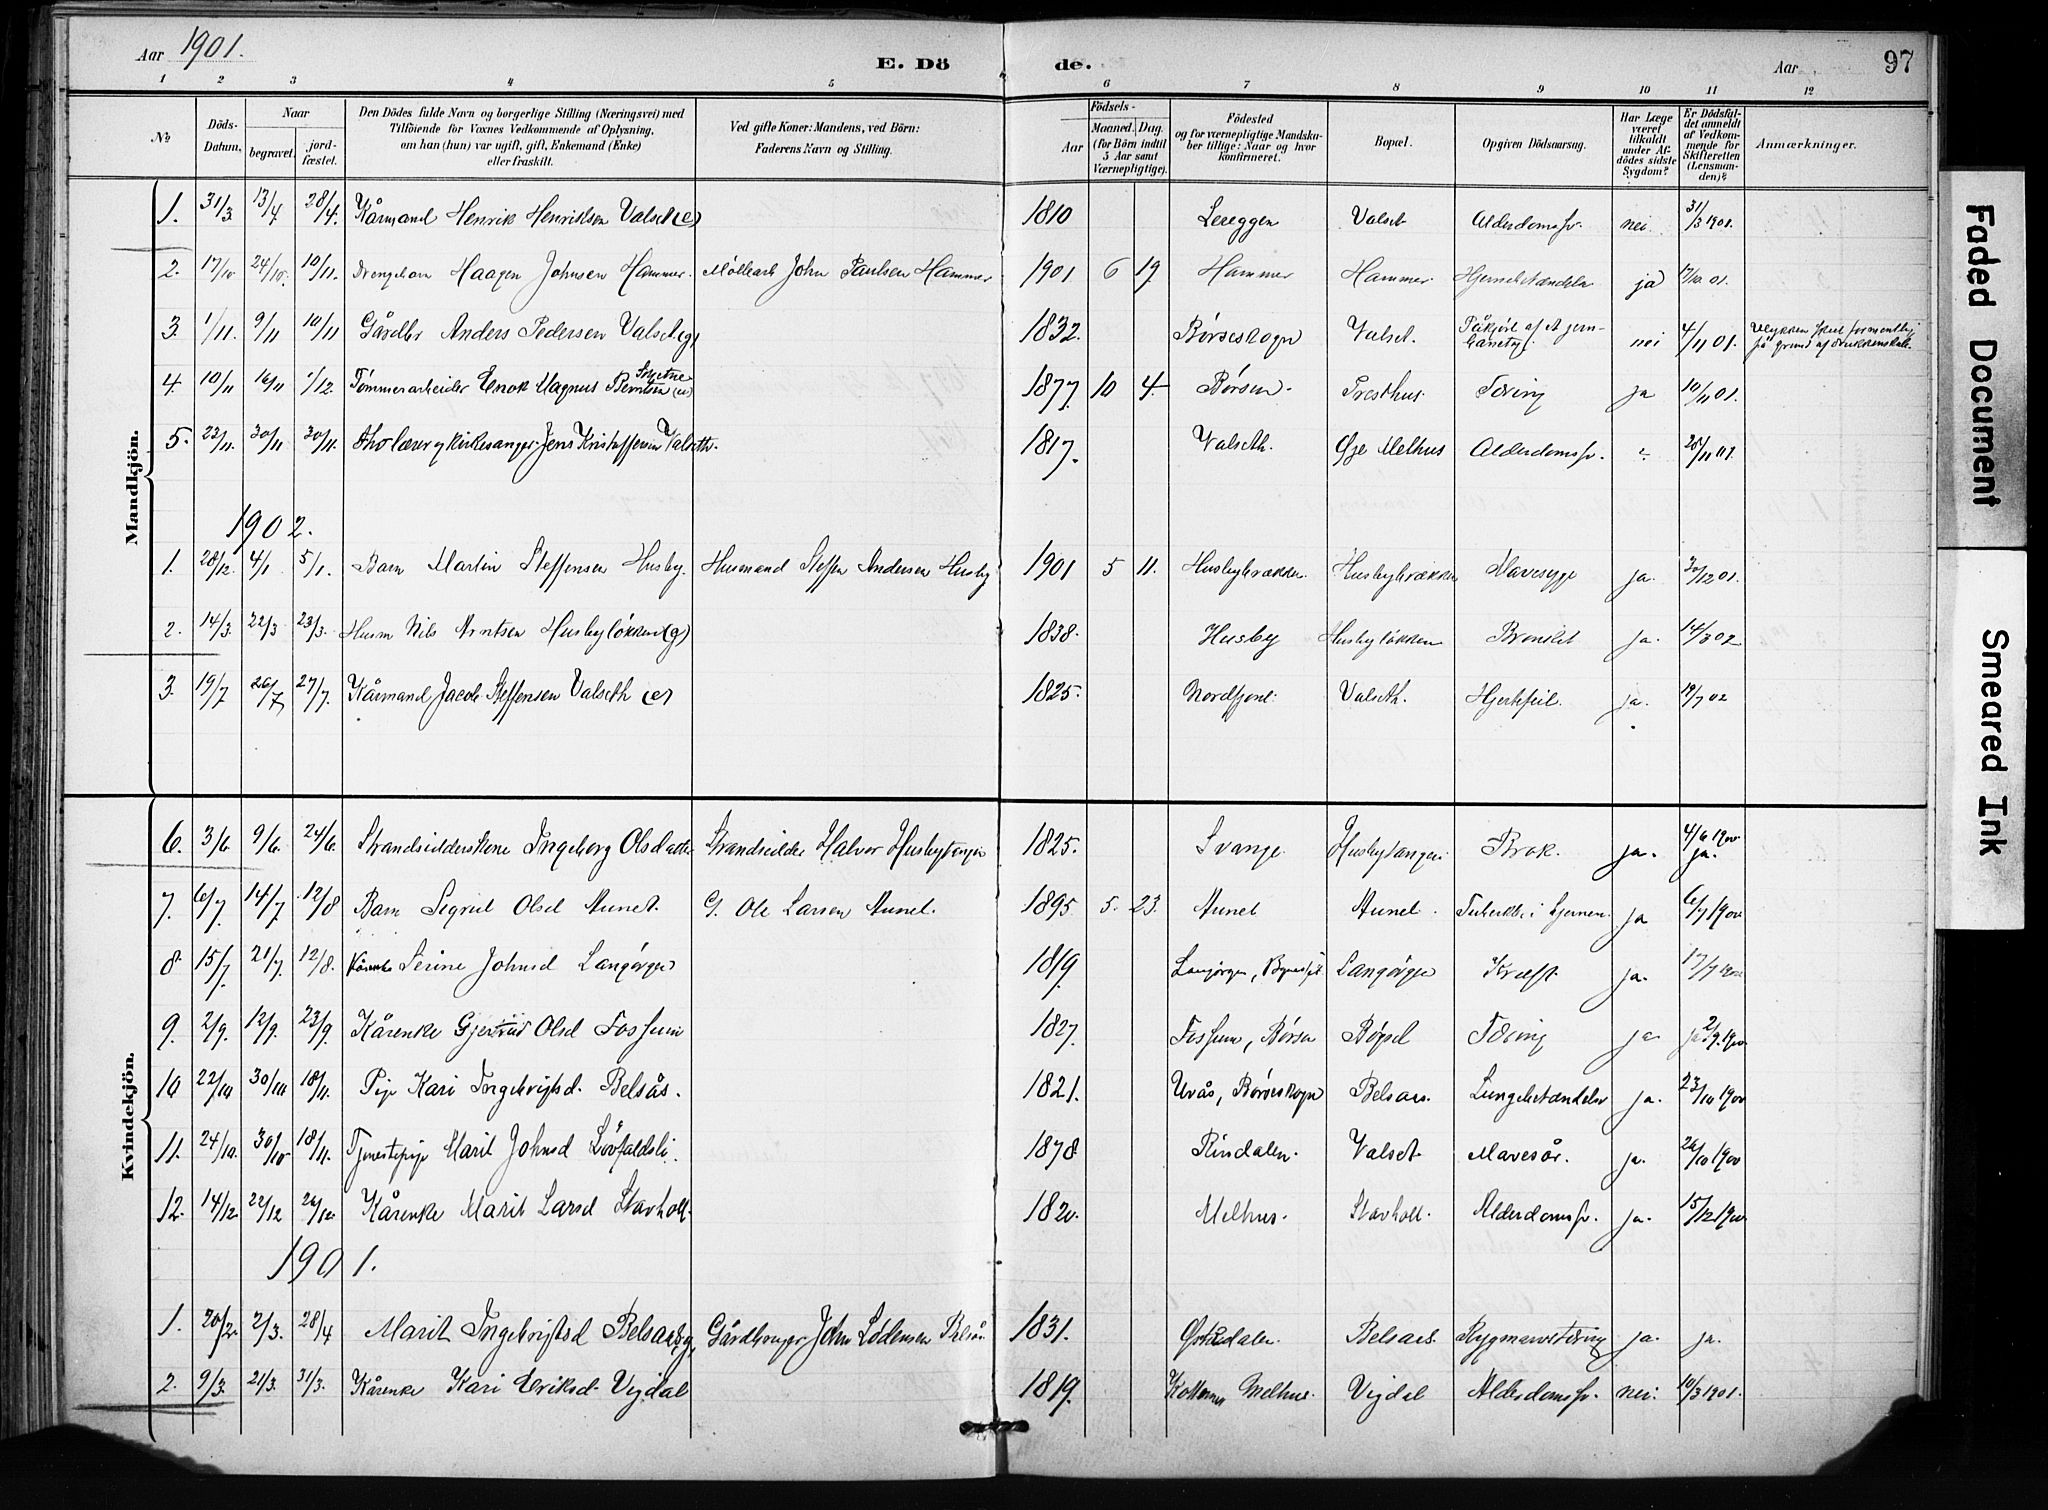 Aar 1901.
E. Dö de.
Aar
97
1 2 3 4 5 6 7 8 9 10 11 12
№
Döds-Datum,
Naar
begravet.
jord-fæstet.
Den Dödes fulde Navn og borgerlige Stilling (Næringsvei) med
Tilföiende for Voxnes Vedkommende af Oplysning,
om han (hun) var ugift, gift, Enkemand (Enke)
eller fraskilt.
Ved gifte Koner: Mandens, ved Börn:
Faderens Navn og Stilling.
Födsels-
Aar
Maaned. Dag.
(for Börn indtil
5 Aar samt
Værnepligtige).
Födested
og for værnepligtige Mandska-
ber tillige: Naar og hvor
konfirmeret.
Bopæl.
Opgiven Dödsaarsag.
Har Læge
været
tilkaldt
under Af-
dödes sidste
Sygdom?
Er Dödsfal-
det anmeldt
af Vedkom-
mende for
Skifteretten
(Lensman-
den)?
Anmærkninger.
Mandkjön.
1. 31/3 13/4 28/4. Kårmand Henrik Henriksen Valset (e) 1810 Lereggen Valset Alderdomssv. nei 31/3 1901.
2. 17/10 24/10. 10/11. Drengebarn Haagen Johnsen Hammer. Møllearb John Paulsen Hammer 1901 6 19 Hammer Hammer Hjernebetændelse ja 17/10.01.
3. 1/11. 9/11 10/11 Gårdbr Anders Pedersen Valset (g) 1832. Børseskogn Valset. Påkjørt af et jern-banetog. nei 4/11 01. Ulykken skeet formentlig på grund af drukkenskab.
4. 10/11 16/11 1/12. Tømmerarbeider Enok Magnus Berntsen (u) 1877. 10 4. Børsen. Presthus. Tæring ja 10/11 01.
5. 23/11. 30/11 30/11. Skolelærer og kirkesanger Jens Kristoffersen Valseth. 1817. Valseth. Øje Melhus Alderdomssv. 25/11 01.
1902.
1. 28/12. 4/1 5/1. Barn Martin Steffensen Husby. Husmand Steffen Andersen Husby 1901 5 11. Husbybrækken. Husbybrækken Mavesyge ja. 30/12 01.
2. 14/3. 22/3 23/3. Husm Nils Arntsen Husbyløkken (g) 1838. Husby Husbyløkken Bronkit ja. 14/3 02
3. 19/7 26/7 27/7. Kårmand Jacob Steffensen Valseth (e) 1825. Nordfjord. Valseth. Hjertefeil. ja. 19/7 02
Kvindekjön.
6. 3/6 9/6. 24/6. Strandsidderkone Ingeborg Olsdatter Strandsidder Halvor Husbytangen 1825. Svange Husbytangen Brok. ja. 4/6 1900 ja.
7. 6/7 14/7 12/8 Barn Sigrid Olsd Aunet. G. Ole Larsen Aunet. 1895 5. 23. Aunet Aunet. Tuberkler i hjernen ja 6/7 1900
8. 15/7. 21/7. 12/8. Kårenke Serine Johnsd Langørgen 1819. Langørgen, Byneset Langørgen Kræft ja. 17/7 1900
9. 2/9. 12/9. 23/9. Kårenke Gjertrud Olsd Fossum 1827. Fossum, Børsen Tæring ja. ja 2/9.1900
10 22/10 30/10 18/11. Pige Kari Ingebrigtsd. Belsås. 1821. Uvås, Børseskogn Belsaas. Lungebetændelse ja. 23/10 1900
11. 24/10. 30/10 18/11. Tjenestepige Marit Johnsd Løvfaldsli. 1878 Rindalen. Valset. Mavesår. ja. 26/10 1900
12. 14/12. 22/12 26/12. Kårenke Marit Larsd Stavholt. 1820. Melhus. Stavholt. Alderdomssv. ja. 15/12 1900
1901.
1. 20/2. 2/3. 28/4 Marit Ingebrigtsd Belsaas g, Gårdbruger John Lødensen Belsås 1831. Ørkedalen Belsaas. Rygmarvstæring ja. ja.
2. 9/3. 21/3. 31/3. Kårenke Kari Eriksd. Vigdal 1819. Melhus. Vigdal Alderdomssv. nei. 10/3 1901.
Faded Document
Smeared Ink